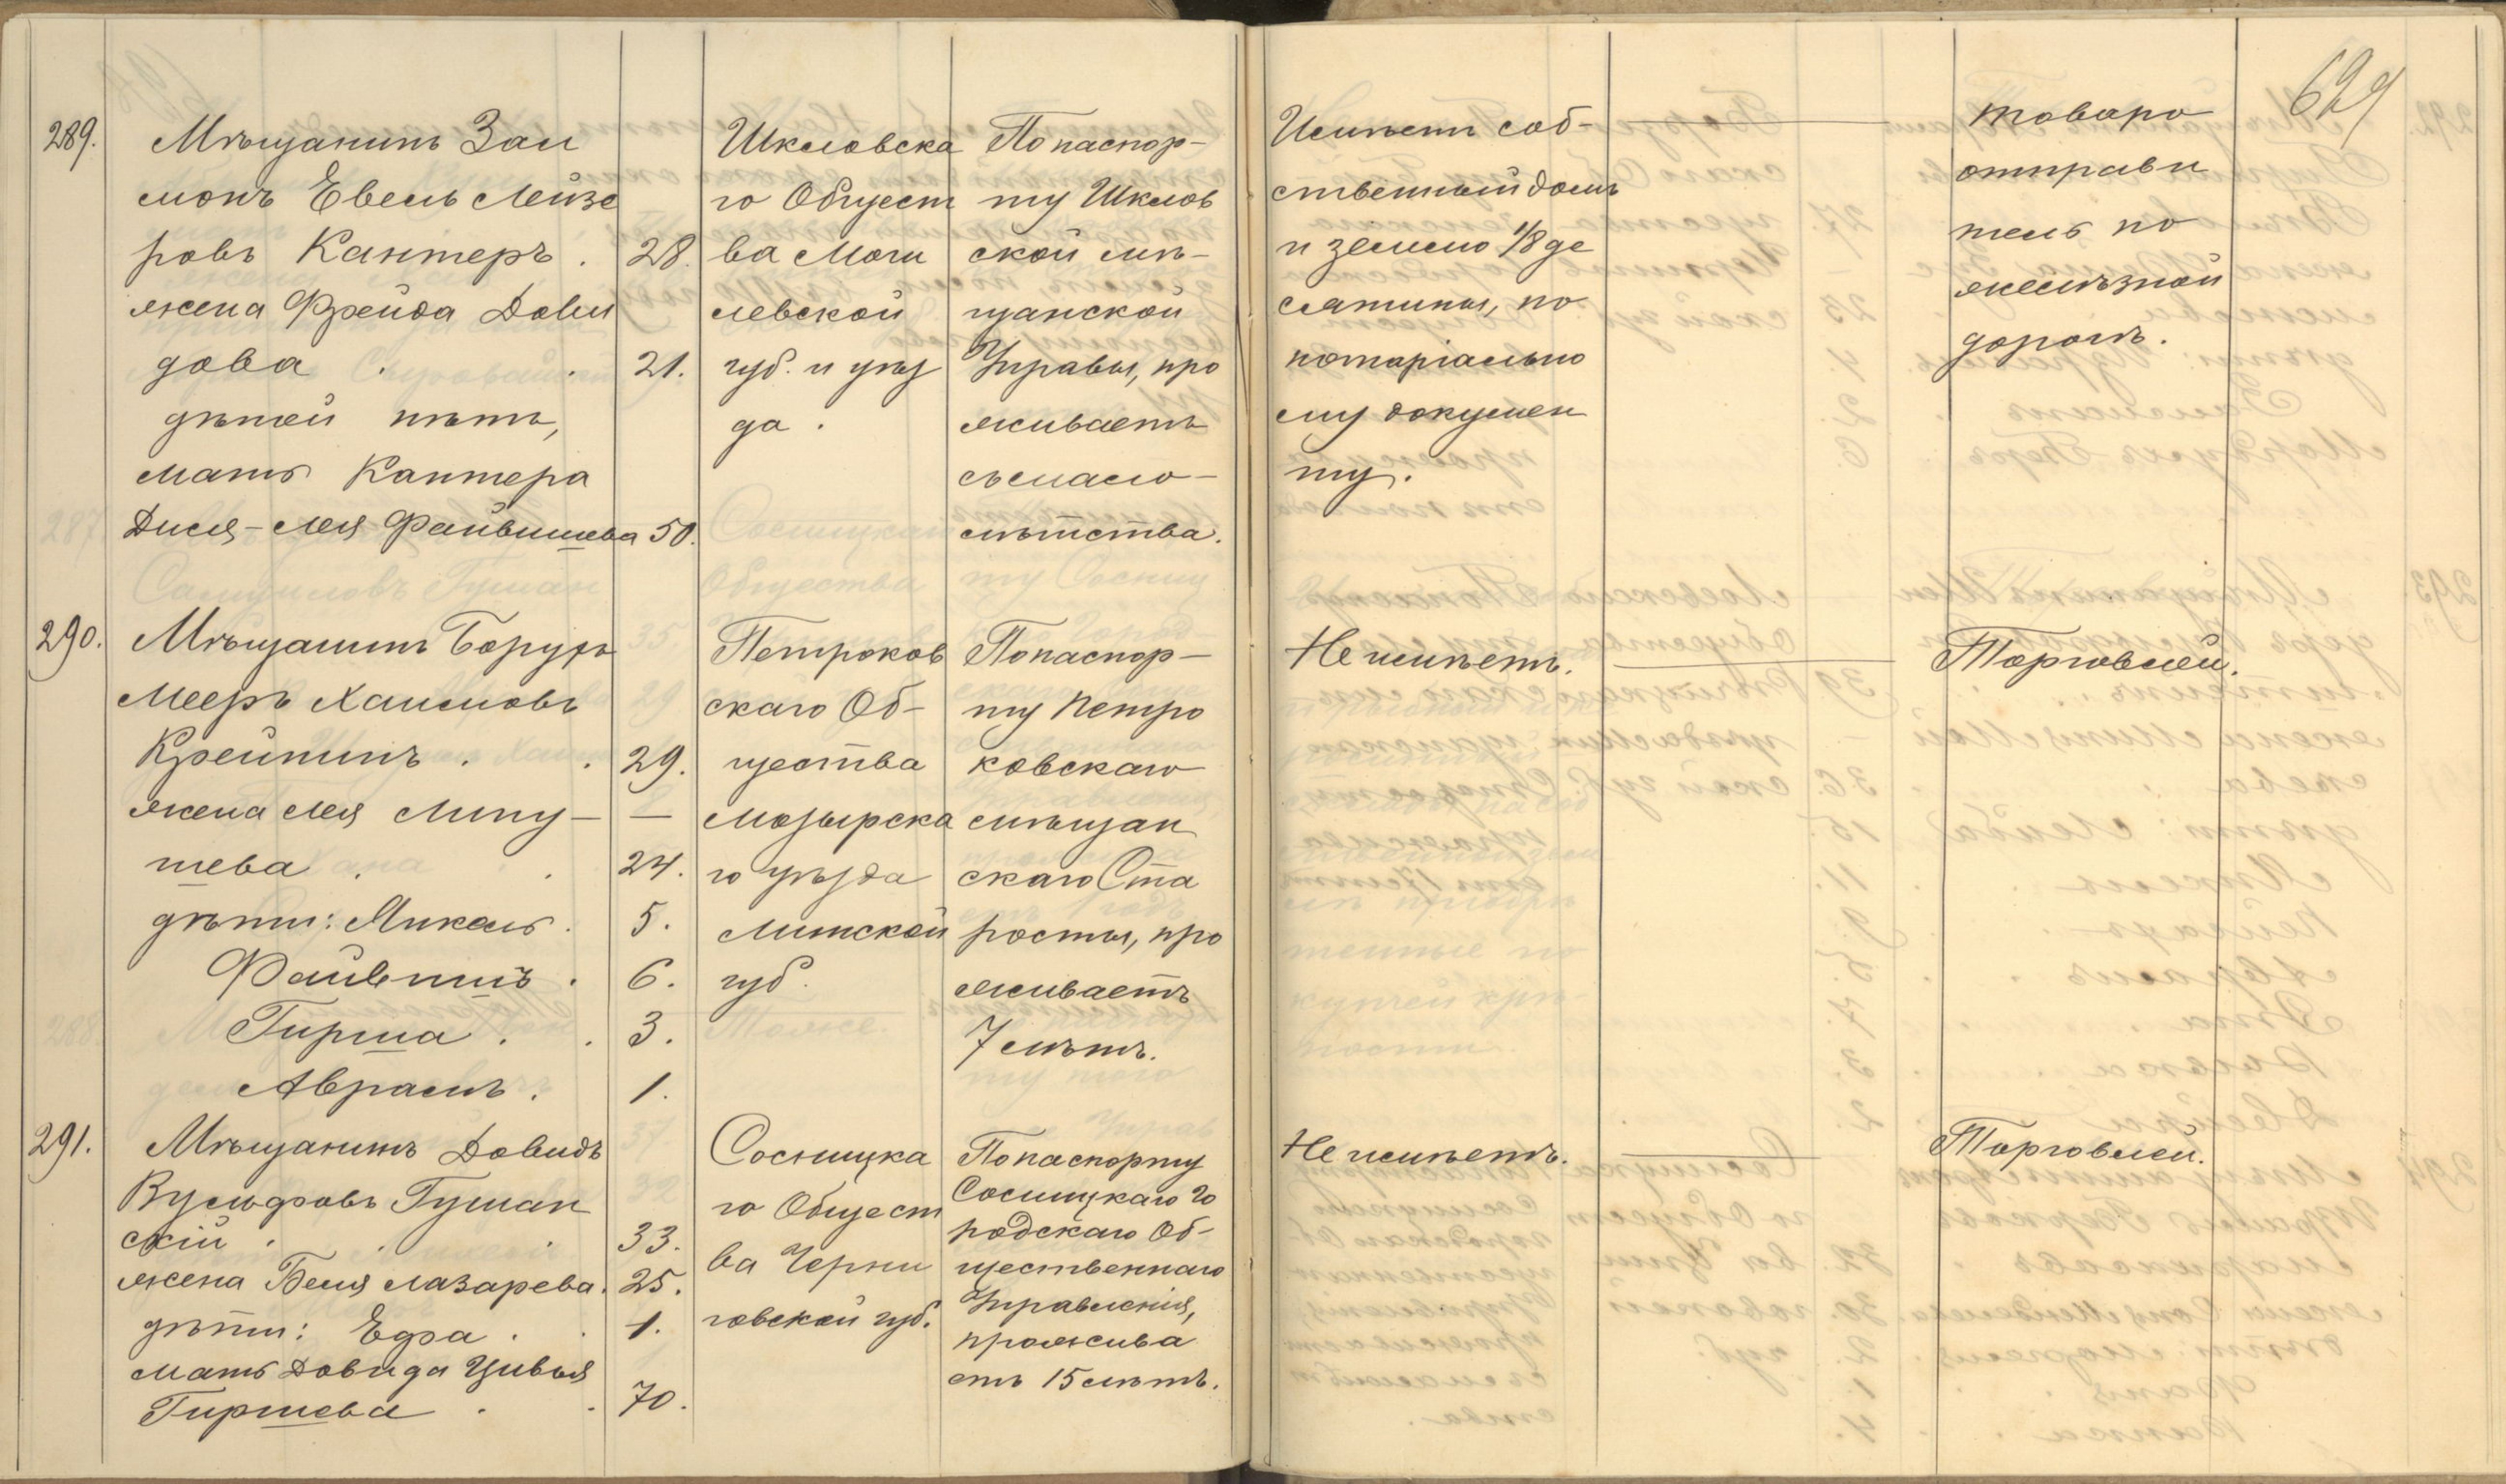 629
289.
Мѣщанинъ Зал
монъ Евель Лейзе
ровъ Кантеръ . 28.
жена Фрейда Дови
дова . . 21.
дѣтей нѣтъ,
мать Кантера
Дися-Лея Файвишева 50.
Шкловска
го Общест
ва Моги
левской
губ. и уѣз
да.
По паспор-
ту Шклов
ской мѣ-
щанской
Управы, про
живаетъ
съ мало-
лѣтства.
Имѣетъ соб-
ственный домъ
и землю 1/8 де
сятины, по
нотаріально
му докумен
ту.
товаро
отправи
тель по
желѣзной
дорогѣ.
290.
Мѣщанинъ Борухъ
Мееръ Хаимовъ
Крейнинъ . . 29.
жена Лея Липу- —
шева . . 24.
дѣти: Микаль . 5.
Файвишъ . 6.
Гирша . . 3.
Аврамъ . 1.
Петроков
скаго Об-
щества
Мозырска
го уѣзда
Минской
губ.
По паспор-
ту Петро
ковскаго
мѣщан
скаго Ста
росты, про
живаетъ
7 лѣтъ.
Не имѣетъ.
Торговлей.
291.
Мѣщанинъ Довидъ
Вульфовъ Гуман
скій . . . 33.
жена Беля Лазарева. 25.
дѣти: Едфа . . 1.
мать Довида Цивья
Гиршева . . 70.
Сосницка
го Общест
ва Черни
говской губ.
По паспорту
Сосницкаго Го
родскаго Об-
щественнаго
Управленія,
прожива
етъ 15 лѣтъ.
Не имѣетъ.
Торговлей.